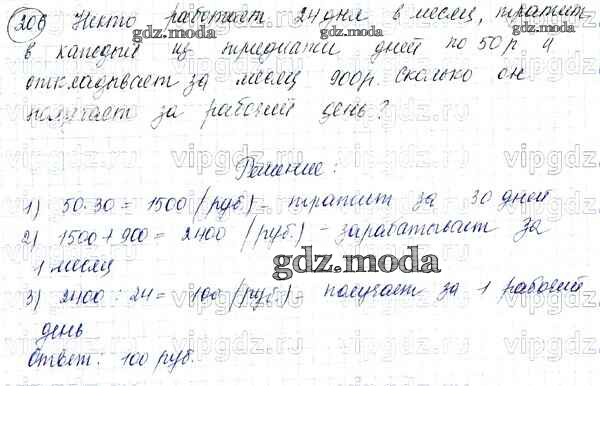 206 Некто работает 24 дня в месяц, тратит
в каждый из тридцати дней по 50р и
откладывает за месяц 900р. Сколько он
получает за рабочий день?
Решение:
1) 50·30 = 1500 (руб) - тратит за 30 дней
2) 1500 + 900 = 2400 (руб.) - зарабатывает за
1 месяц
3) 2400 : 24 = 100 (руб.) - получает за 1 рабочий
день
Ответ: 100 руб.
gdz.moda
gdz.moda
gdz.moda
gdz.moda
gdz.moda
vipgdz.ru